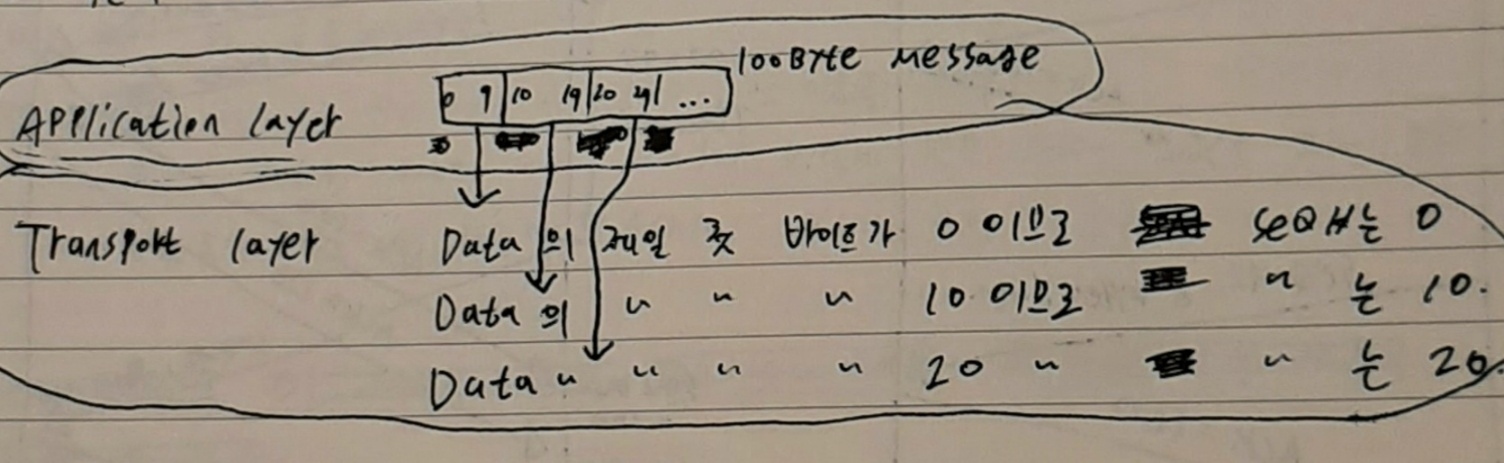 100Byte Message
0 9 10 19 20 29 ...
Application layer
Transport layer Data의 제일 첫 바이트가 0 이므로 SEQ#는 0
Data의 " " " 10 이므로 " 는 10.
Data " " " " 20 " " 는 20.